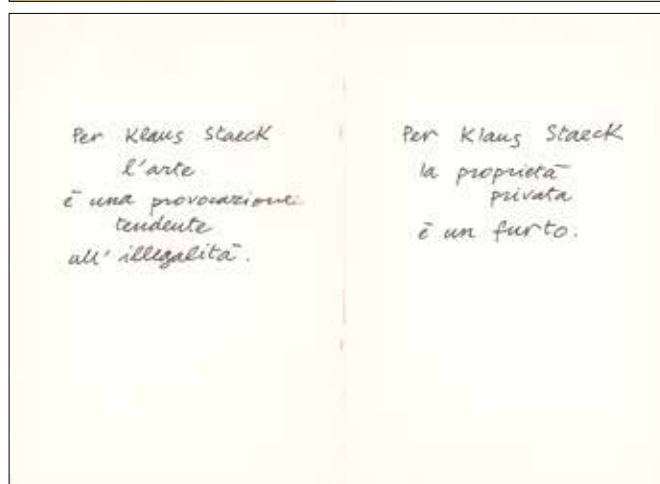 Per Klaus Staeck
l'arte
è una provocazione
tendente
all'illegalità.
Per Klaus Staeck
la proprietà
privata
è un furto.